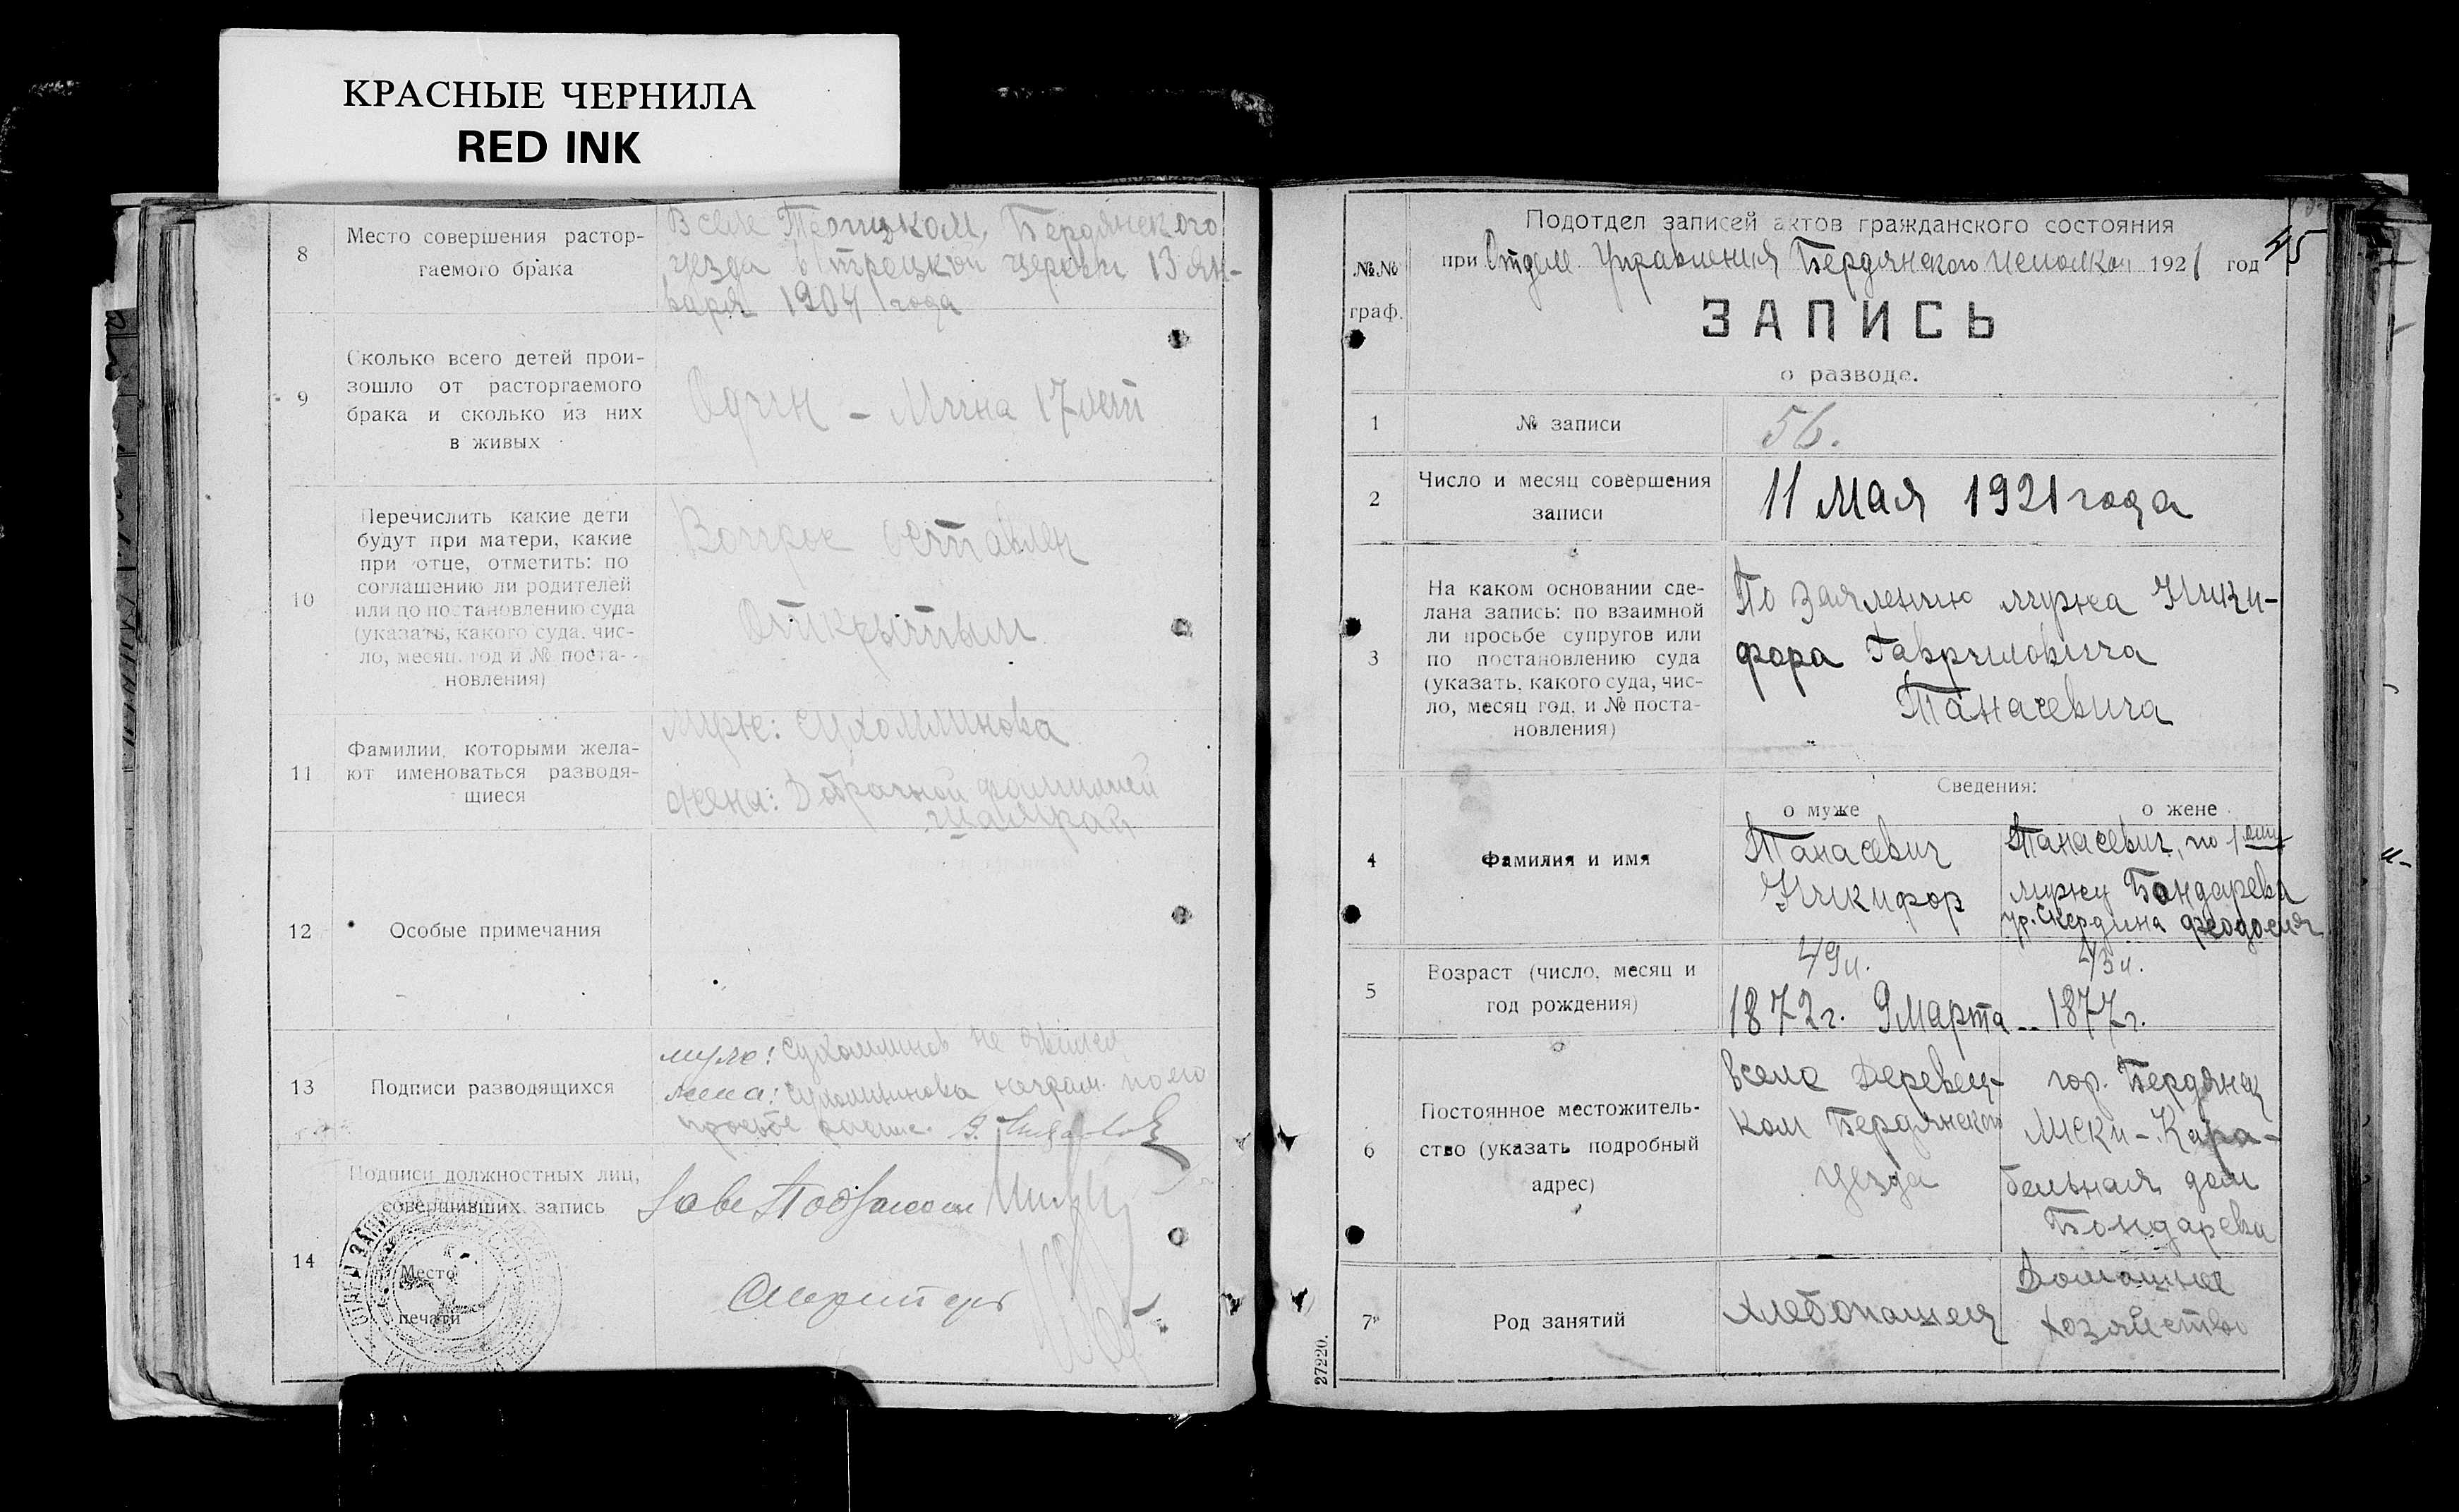 КРАСНЫЕ ЧЕРНИЛА
RED INK
8
Место совершения растор-
гаемого брака
В селе Троицком, Бердянского
уезда в троицкой церкви 13 ян-
варя 1904 года
9
Сколько всего детей прои-
зошло от расторгаемого
брака и сколько из них
в живых
Один - Мина 17 лет
10
Перечислить какие дети
будут при матери, какие
при отце, отметить: по
соглашению ли родителей
или по постановлению суда
(указать, какого суда, чис-
ло, месяц, год и № поста-
новления)
Вопрос оставлен
открытым
11
Фамилии, которыми жела-
ют именоваться разводя-
щиеся
муж: Сухомлинова
жена: Добрачной фамилией
12
Особые примечания
13
Подписи разводящихся
муж: Сухомлинов не явился
жена: Сухомлинова по его
просьбе
14
Подписи должностных лиц,
совершивших запись
Место
печати
Зав Подзагсом
Секретарь
№№
граф.
Подотдел записей актов гражданского состояния
при Отделе Управления Бердянского исполком 1921 год
45
ЗАПИСЬ
о разводе.
1
№ записи
56.
2
Число и месяц совершения
записи
11 мая 1921 года
3
На каком основании сде-
лана запись: по взаимной
ли просьбе супругов или
по постановлению суда
(указать, какого суда, чис-
ло, месяц год, и № поста-
новления)
По заявлению мужа Ники-
фора Гавриловича
Танасевича
Сведения:
о муже
о жене
4
Фамилия и имя
Танасевич
Никифор
Танасевич, по 1
мужу Бондарева
ур. Скердина Феодосия
5
Возраст (число, месяц и
год рождения)
49 л.
1872 г. 9 марта
43 л.
1877 г.
6
Постоянное местожитель-
ство (указать подробный
адрес)
в селе Деревец-
ком Бердянского
уезда
гор. Бердянск
Лиски-Кора-
бельная, дом
Бондарева
7
Род занятий
Хлебопашец
Домашнее
хозяйство
27220.